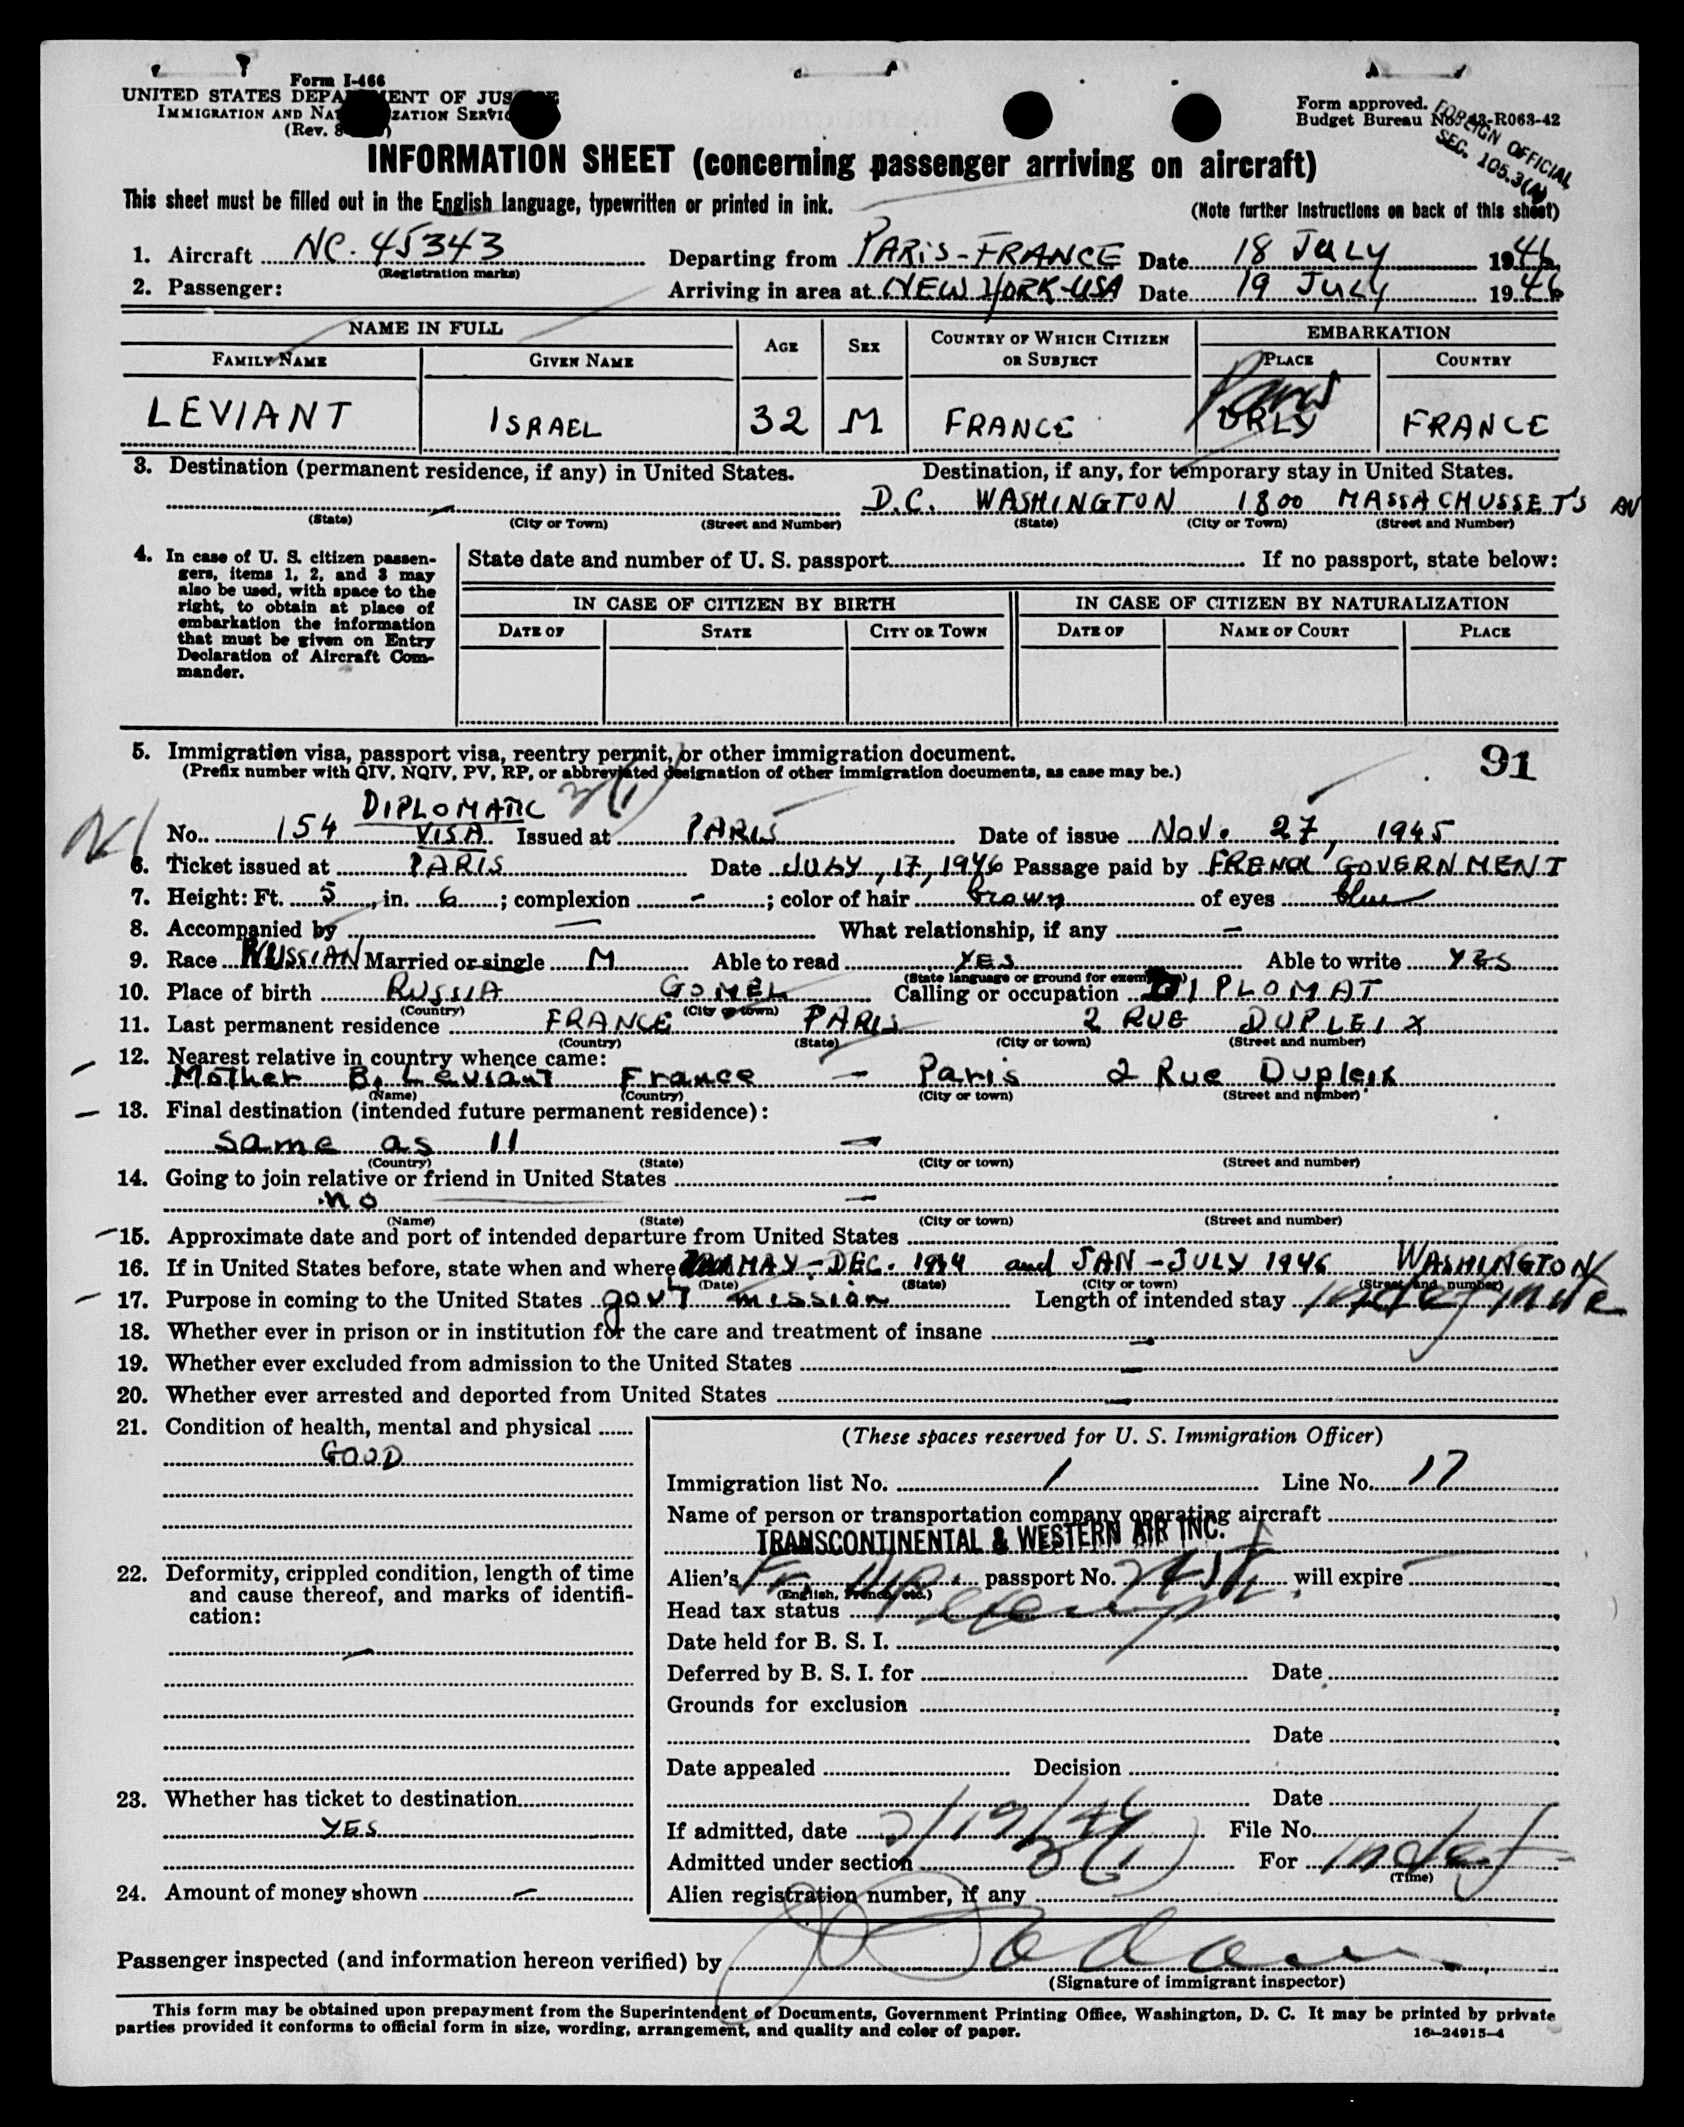 Form I-466
UNITED STATES DEPARTMENT OF JUSTICE
IMMIGRATION AND NATURALIZATION SERVICE
(Rev. 8
Form approved.
Budget Bureau No. 43-R063-42
FOREIGN OFFICIAL
SEC. 105.3(A)
INFORMATION SHEET (concerning passenger arriving on aircraft)
This sheet must be filled out in the English language, typewritten or printed in ink.
(Note further instructions on back of this sheet)
1. Aircraft NC. 45343 Departing from PARIS-FRANCE Date 18 JULY 1946
(Registration marks)
2. Passenger: Arriving in area at NEW YORK-USA Date 19 JULY 1946
NAME IN FULL AGE SEX COUNTRY OF WHICH CITIZEN OR SUBJECT EMBARKATION
FAMILY NAME GIVEN NAME PLACE COUNTRY
Paris
LEVIANT ISRAEL 32 M FRANCE ORLY FRANCE
3. Destination (permanent residence, if any) in United States. Destination, if any, for temporary stay in United States.
— D.C. WASHINGTON 1800 MASSACHUSSET'S AV
(State) (City or Town) (Street and Number) (State) (City or Town) (Street and Number)
4. In case of U. S. citizen passengers, items 1, 2, and 3 may also be used, with space to the right, to obtain at place of embarkation the information that must be given on Entry Declaration of Aircraft Commander.
State date and number of U. S. passport If no passport, state below:
IN CASE OF CITIZEN BY BIRTH IN CASE OF CITIZEN BY NATURALIZATION
DATE OF STATE CITY OR TOWN DATE OF NAME OF COURT PLACE
5. Immigration visa, passport visa, reentry permit, or other immigration document.
91
(Prefix number with QIV, NQIV, PV, RP, or abbreviated designation of other immigration documents, as case may be.)
3(1)
No. 154 DIPLOMATIC VISA Issued at PARIS Date of issue Nov. 27, 1945
6. Ticket issued at PARIS Date JULY, 17, 1946 Passage paid by FRENCH GOVERNMENT
7. Height: Ft. 5, in. 6; complexion -; color of hair Brown of eyes blue
8. Accompanied by — What relationship, if any —
9. Race RUSSIAN Married or single M Able to read YES Able to write YES
(State language or ground for exemption)
10. Place of birth RUSSIA GOMEL Calling or occupation DIPLOMAT
(Country) (City or town)
11. Last permanent residence FRANCE PARIS 2 RUE DUPLEIX
(Country) (State) (City or town) (Street and number)
12. Nearest relative in country whence came:
Mother B. Leviant France — Paris 2 Rue Dupleix
(Name) (Country) (City or town) (Street and number)
13. Final destination (intended future permanent residence):
Same as 11 —
(Country) (State) (City or town) (Street and number)
14. Going to join relative or friend in United States
no —
(Name) (State) (City or town) (Street and number)
15. Approximate date and port of intended departure from United States
16. If in United States before, state when and where MAY - DEC. 1944 and JAN - JULY 1946 WASHINGTON
(Date) (State) (City or town) (Street and number)
17. Purpose in coming to the United States gov't mission Length of intended stay indefinite
18. Whether ever in prison or in institution for the care and treatment of insane —
19. Whether ever excluded from admission to the United States —
20. Whether ever arrested and deported from United States —
21. Condition of health, mental and physical
GOOD
22. Deformity, crippled condition, length of time and cause thereof, and marks of identification:
—
23. Whether has ticket to destination
YES
24. Amount of money shown —
(These spaces reserved for U. S. Immigration Officer)
Immigration list No. 1 Line No. 17
Name of person or transportation company operating aircraft
TRANSCONTINENTAL & WESTERN AIR INC.
Alien's Fr. Dip. passport No. will expire
(English, French, etc.)
Head tax status
Date held for B. S. I.
Deferred by B. S. I. for Date
Grounds for exclusion
Date
Date appealed Decision
Date
If admitted, date 7/19/46 File No.
Admitted under section 3(1) For Indef
(Time)
Alien registration number, if any
Passenger inspected (and information hereon verified) by
(Signature of immigrant inspector)
This form may be obtained upon prepayment from the Superintendent of Documents, Government Printing Office, Washington, D. C. It may be printed by private
parties provided it conforms to official form in size, wording, arrangement, and quality and color of paper.
16—24915-4